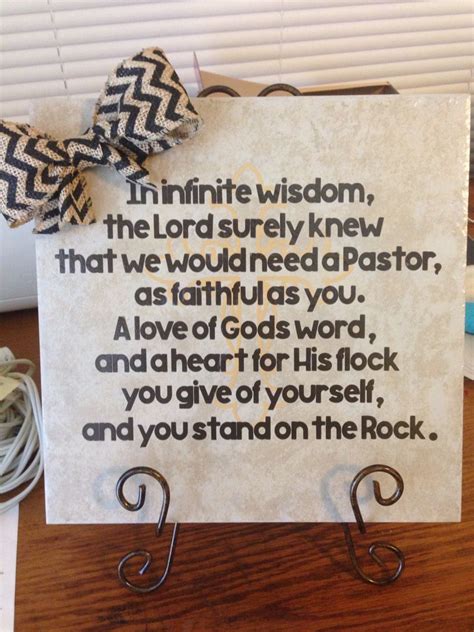 In infinite wisdom,
the Lord surely knew
that we would need a Pastor,
as faithful as you.
A love of Gods word,
and a heart for His flock
you give of yourself,
and you stand on the Rock.